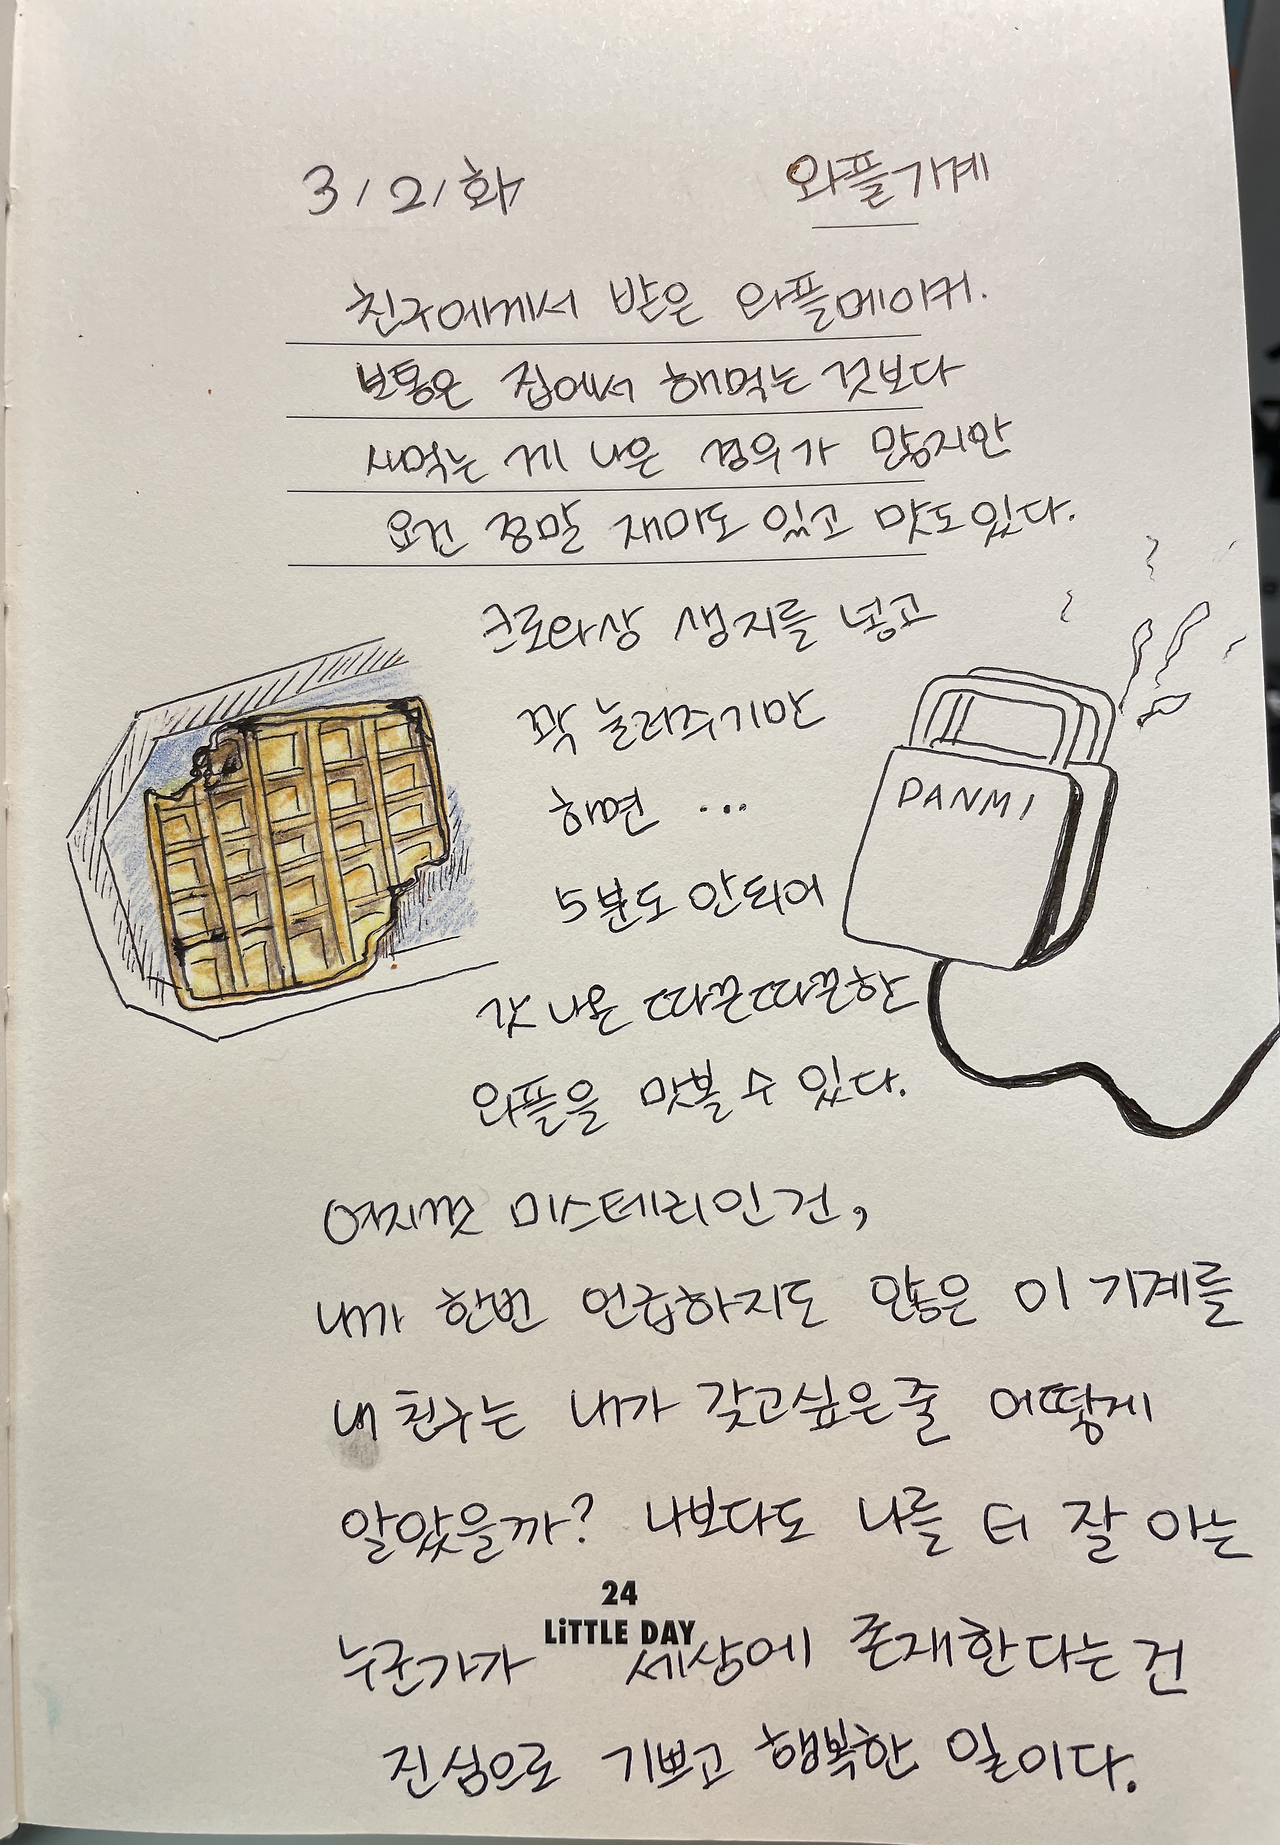 3/2/화 와플기계
친구에게서 받은 와플메이커.
보통은 집에서 해먹는 것보다
사먹는 게 나은 경우가 많지만
요건 정말 재미도 있고 맛도있다.
크로와상 생지를 넣고
꽉 눌러주기만
하면 ...
5분도 안되어
갓 나온 따끈따끈한
와플을 맛볼 수 있다.
PANMI
여지껏 미스테리인 건,
내가 한번 언급하지도 않은 이 기계를
내 친구는 내가 갖고싶은줄 어떻게
알았을까? 나보다도 나를 더 잘 아는
24
LiTTLE DAY
누군가가 세상에 존재한다는 건
진심으로 기쁘고 행복한 일이다.